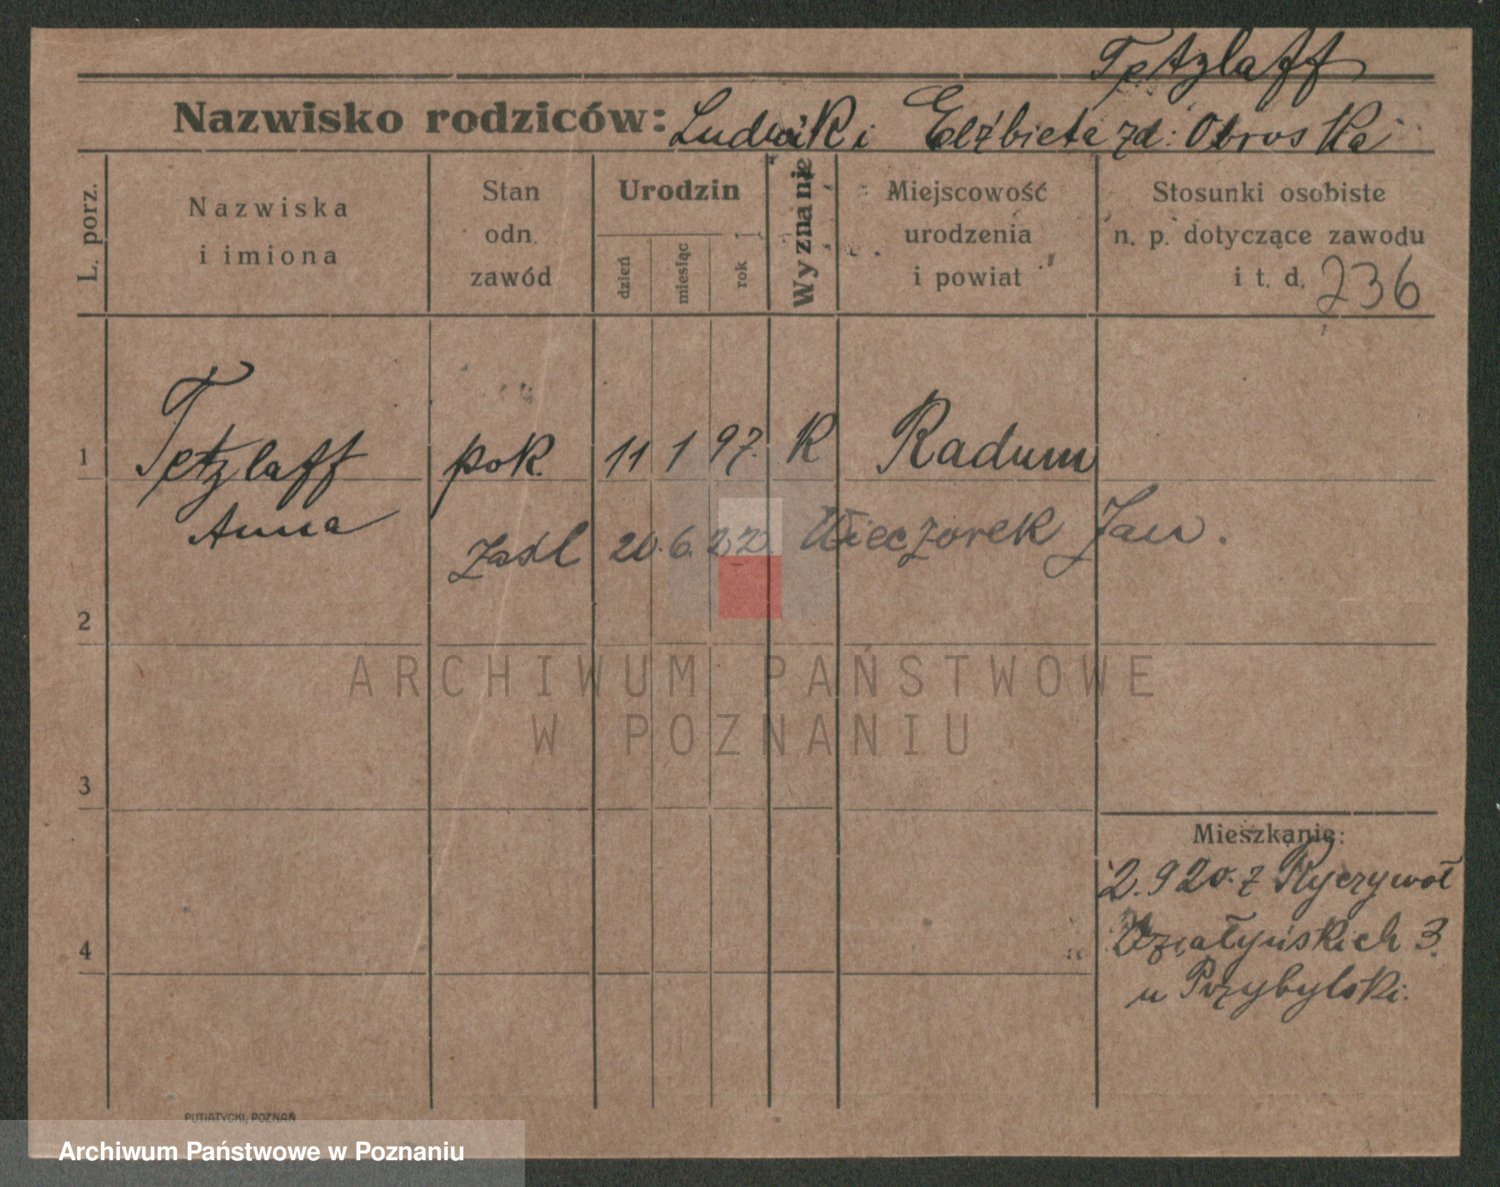 Tetzlaff
Nazwisko rodziców: Ludwik i Elżbieta zd: Obroska
L. porz.
Nazwiska
i imiona
Stan
odn.
zawód
Urodzin
dzień
miesiąc
rok
Wyznanie
Miejscowość
urodzenia
i powiat
Stosunki osobiste
n. p. dotyczące zawodu
i t. d. 236
1 Tetzlaff pok. 11 1 97. K Radum
Anna
20.6.22 Wieczorek Jan.
2
ARCHIWUM PAŃSTWOWE
W POZNANIU
3
Mieszkanie:
2.9 20. z Ryczywoł
Działyńskich 3.
u Przybylski.
4
PUTIATYCKI, POZNAŃ
Archiwum Państwowe w Poznaniu